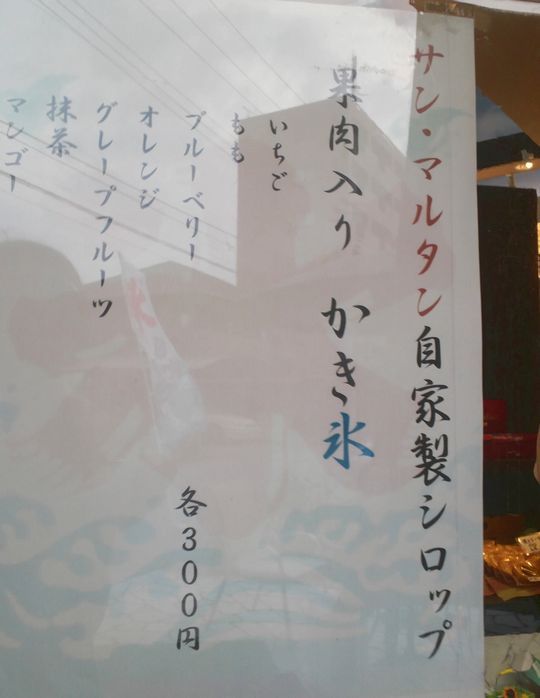 サン・マルタン自家製シロップ
果肉入り かき氷
いちご
もも
ブルーベリー
オレンジ
グレープフルーツ
抹茶
マンゴー
各300円